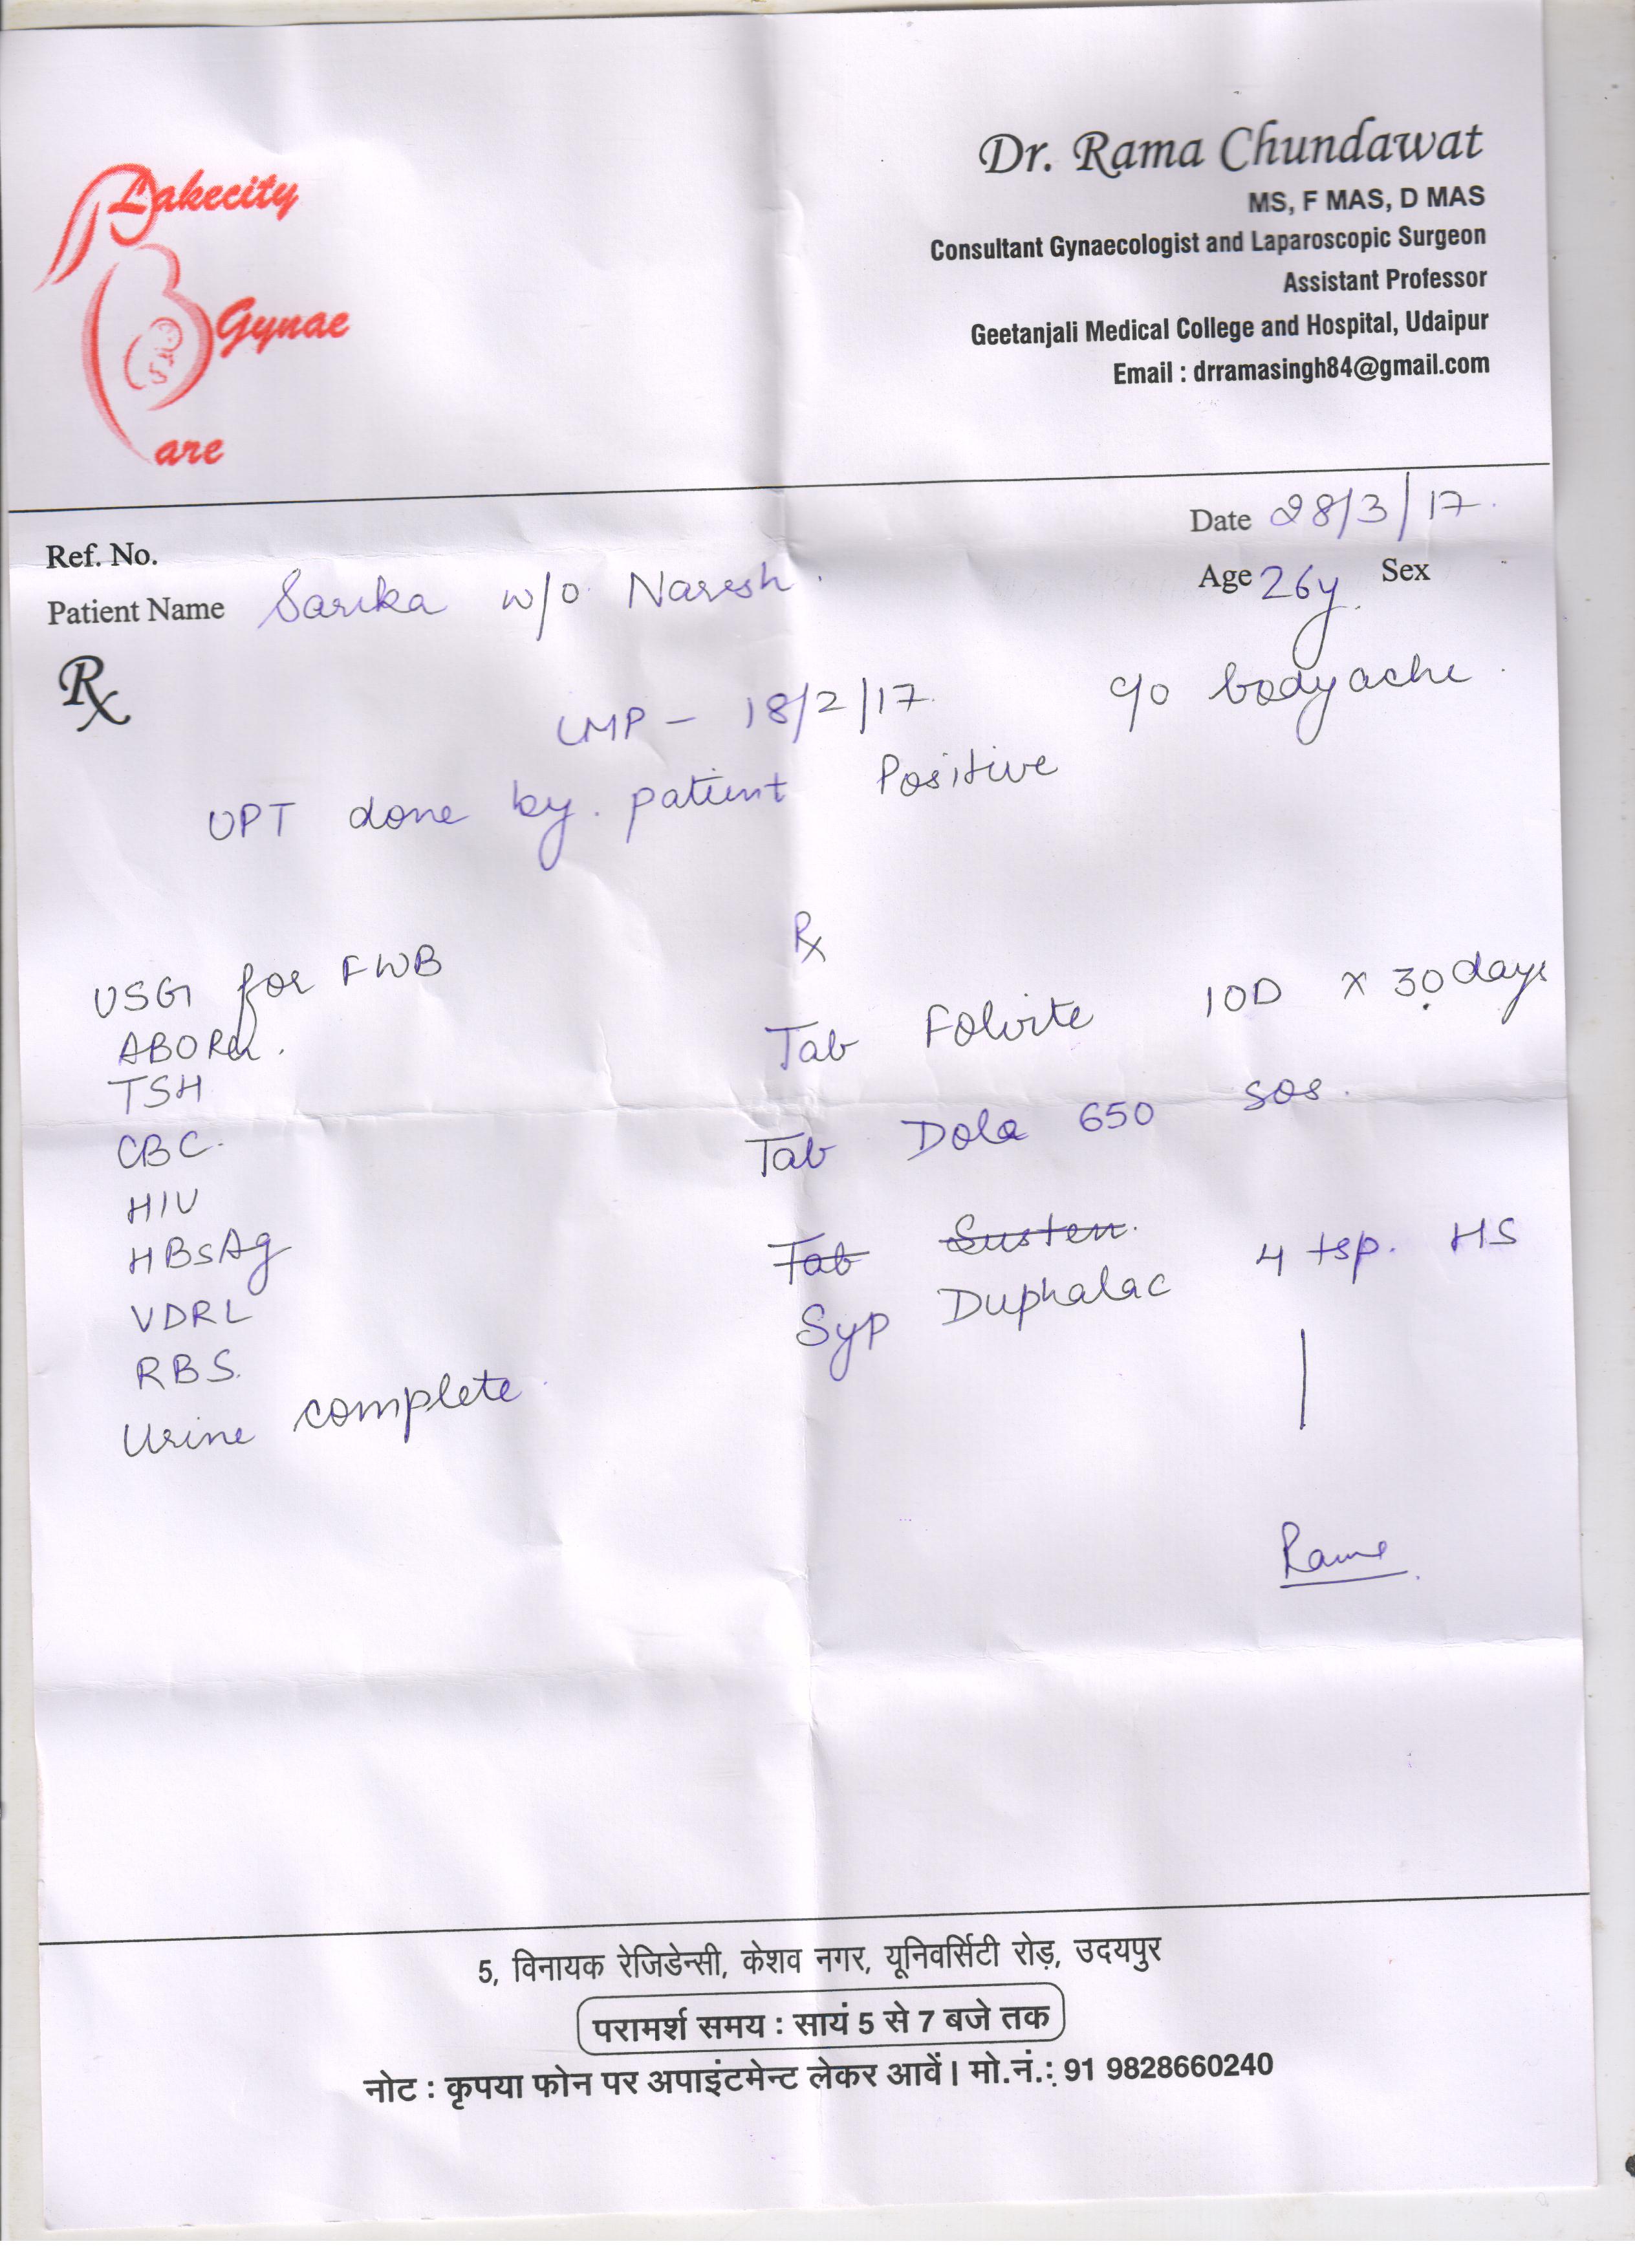 Lakecity
Gynae
Care
Dr. Rama Chundawat
MS, F MAS, D MAS
Consultant Gynaecologist and Laparoscopic Surgeon
Assistant Professor
Geetanjali Medical College and Hospital, Udaipur
Email : drramasingh84@gmail.com
Date 28/3/17.
Ref. No.
Age 26y. Sex
Patient Name Sarika w/o Naresh.
Rx
LMP - 18/2/17. c/o bodyache.
UPT done by patient Positive
Rx
USG for FWB
Tab Folvite 1OD x 30 days
ABORh.
TSH
Tab Dolo 650 SOS.
CBC.
HIV
Tab Susten.
HBsAg
Syp Duphalac 4 tsp. HS
VDRL
RBS.
Urine complete.
Rama
5, विनायक रेजिडेन्सी, केशव नगर, यूनिवर्सिटी रोड़, उदयपुर
परामर्श समय : सायं 5 से 7 बजे तक
नोट : कृपया फोन पर अपाइंटमेन्ट लेकर आवें। मो.नं.: 91 9828660240